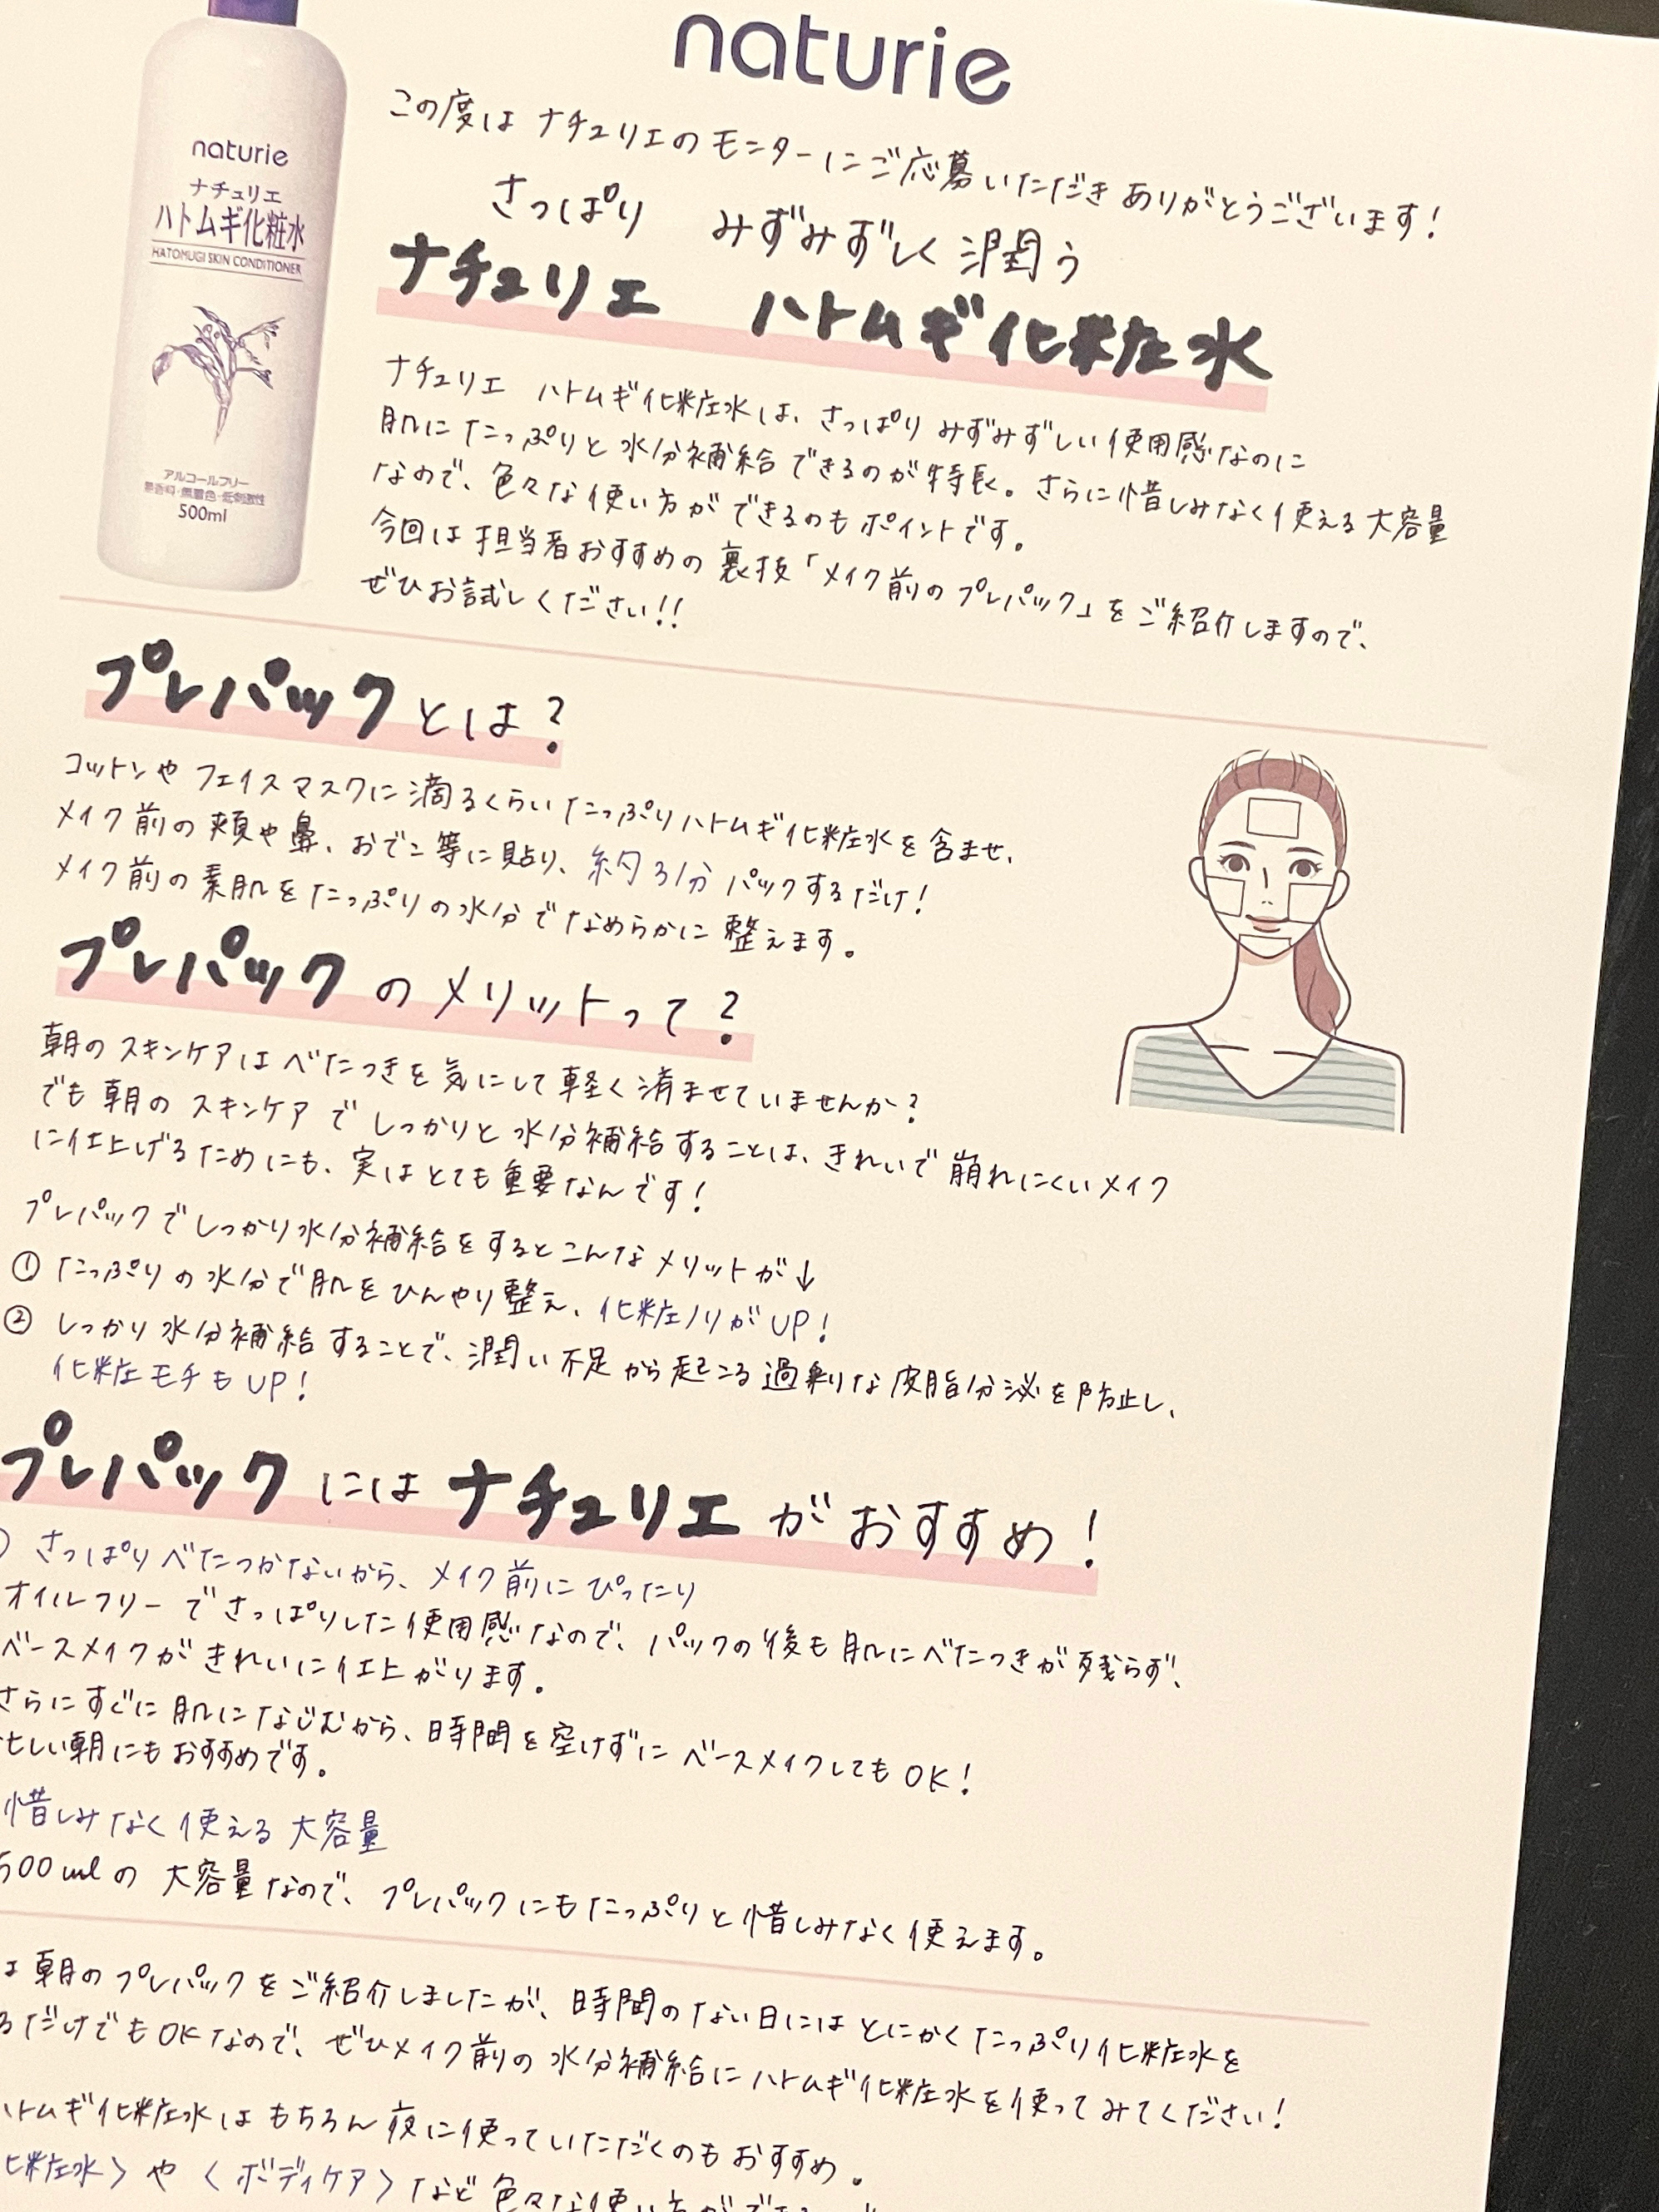 naturie
この度は ナチュリエのモニターにご応募いただき ありがとうございます!
さっぱり みずみずしく潤う
ナチュリエ ハトムギ化粧水
naturie
ナチュリエ
ハトムギ化粧水
HATOMUGI SKIN CONDITIONER
アルコールフリー
無香料・無着色・低刺激性
500ml
ナチュリエ ハトムギ化粧水は、さっぱり みずみずしい使用感なのに
肌にたっぷりと水分補給できるのが特長。さらに惜しみなく使える大容量
なので、色々な使い方ができるのもポイントです。
今回は担当者おすすめの裏技「メイク前のプレパック」をご紹介しますので、
ぜひお試しください!!
プレパックとは?
コットンやフェイスマスクに滴るくらいたっぷりハトムギ化粧水を含ませ、
メイク前の頬や鼻、おでこ等に貼り、約3分パックするだけ!
メイク前の素肌をたっぷりの水分でなめらかに整えます。
プレパックのメリットって?
朝のスキンケアはべたつきを気にして軽く済ませていませんか?
でも朝のスキンケアでしっかりと水分補給することは、きれいで崩れにくいメイク
に仕上げるためにも、実はとても重要なんです!
プレパックでしっかり水分補給をするとこんなメリットが↓
① たっぷりの水分で肌をひんやり整え、化粧ノリがUP!
② しっかり水分補給することで、潤い不足から起こる過剰な皮脂分泌を防止し、
化粧モチもUP!
プレパックにはナチュリエがおすすめ!
さっぱりべたつかないから、メイク前にぴったり
オイルフリーでさっぱりした使用感なので、パックの後も肌にべたつきが残らず、
ベースメイクがきれいに仕上がります。
さらにすぐに肌になじむから、時間を空けずにベースメイクしてもOK!
忙しい朝にもおすすめです。
惜しみなく使える大容量
500mlの大容量なので、プレパックにもたっぷりと惜しみなく使えます。
は朝のプレパックをご紹介しましたが、時間のない日にはとにかくたっぷり化粧水を
るだけでもOKなので、ぜひメイク前の水分補給にハトムギ化粧水を使ってみてください!
ハトムギ化粧水はもちろん夜に使っていただくのもおすすめ。
化粧水〉や〈ボディケア〉など色々な使い方ができ